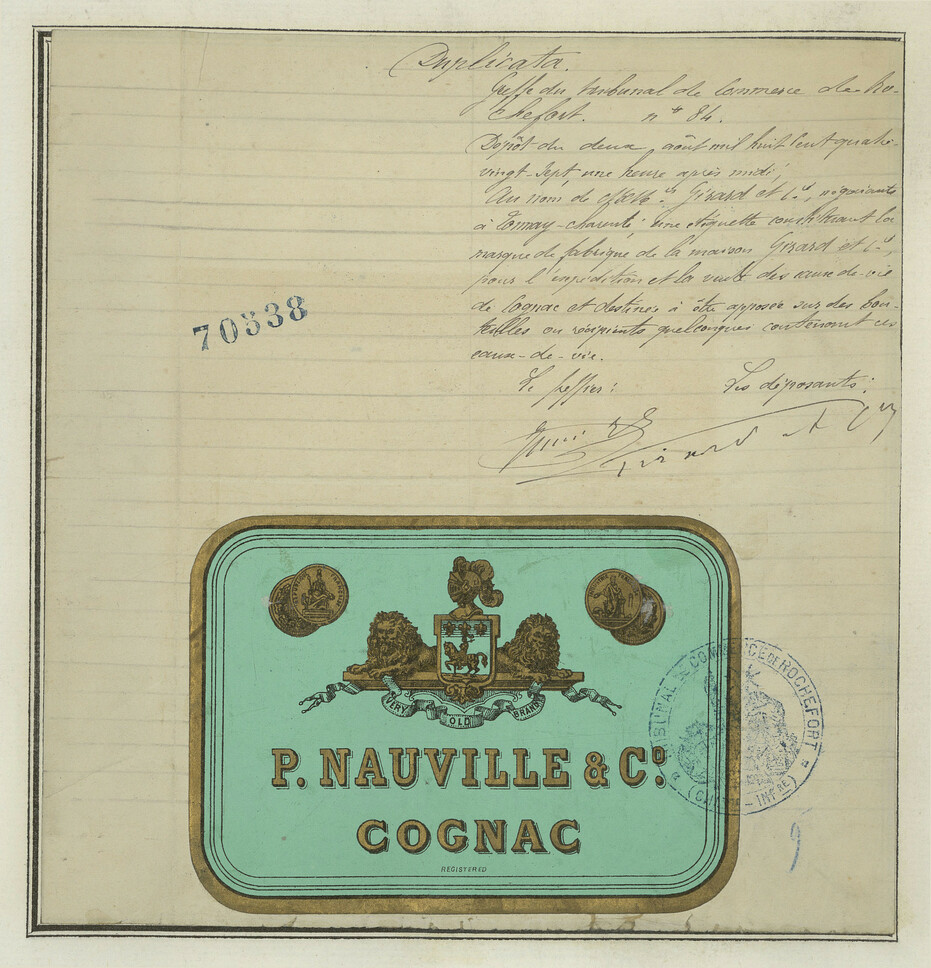 Duplicata.
Greffe du tribunal de Commerce de Ro-
chefort. n° 84.
Dépôt du deux août mil huit cent quatre-
vingt-sept, une heure après midi,
Au nom de MM. Girard et Cie, négociants
à Tonnay-Charente, une étiquette constituant la
marque de fabrique de la maison Girard et Cie,
pour l'expédition et la vente des eaux-de-vie
de Cognac et destinée à être apposée sur des bou-
teilles ou récipients quelconques contenant ces
eaux-de-vie.
Le greffier: Les déposants:
Girard et Cie
70538
VERY OLD BRANDY
P. NAUVILLE & Co.
COGNAC
REGISTERED
TRIBUNAL DE COMMERCE DE ROCHEFORT
(CHARTE-INFRE)